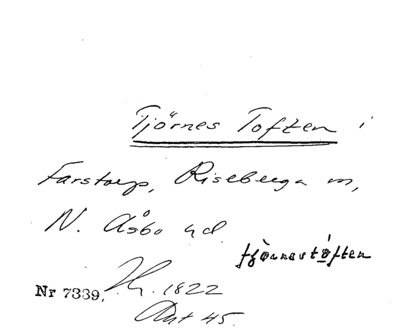 Tjörnes Toften i
Farstorp, Riseberga sn,
N. Åsbo hd
Nr 7339. Jh. 1822
Akt 45.